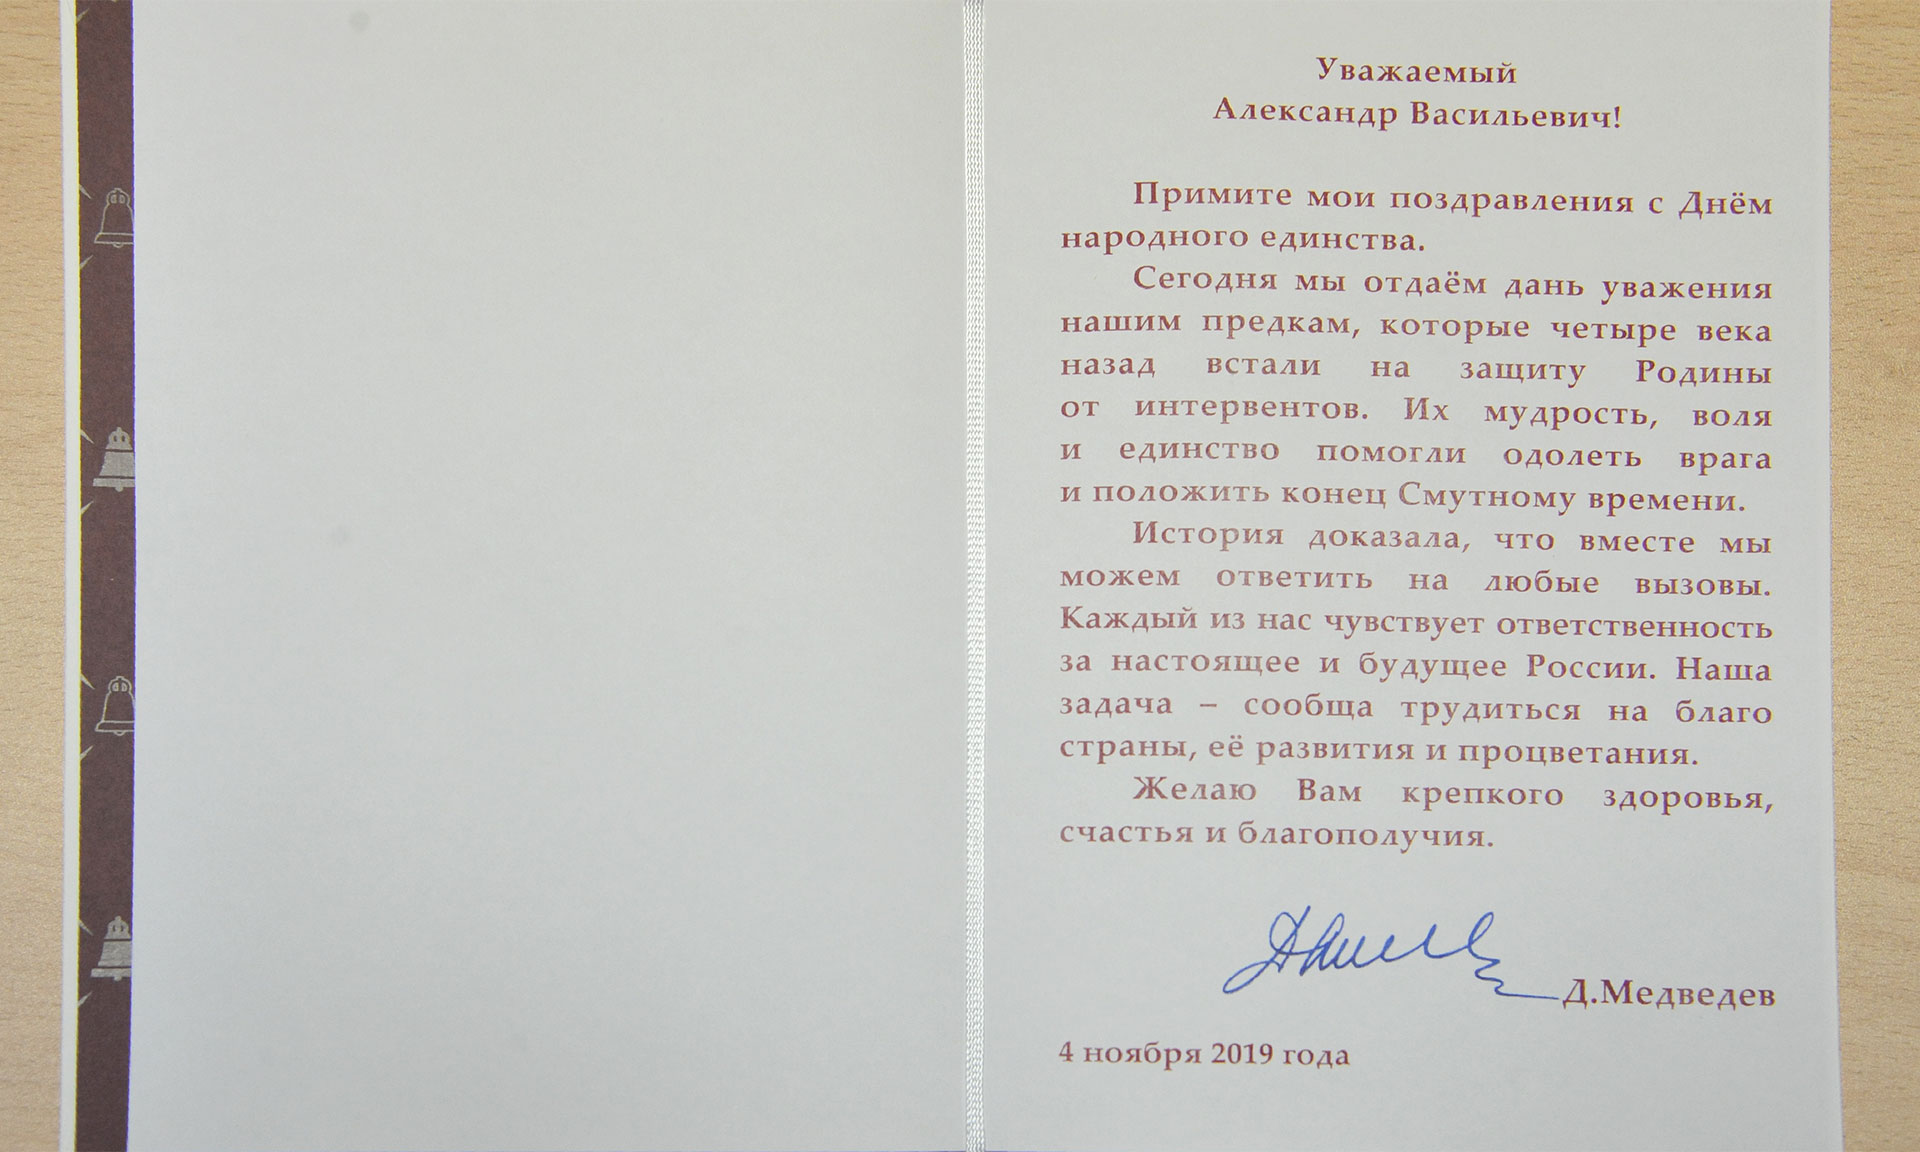 Уважаемый
Александр Васильевич!
Примите мои поздравления с Днём
народного единства.
Сегодня мы отдаём дань уважения
нашим предкам, которые четыре века
назад встали на защиту Родины
от интервентов. Их мудрость, воля
и единство помогли одолеть врага
и положить конец Смутному времени.
История доказала, что вместе мы
можем ответить на любые вызовы.
Каждый из нас чувствует ответственность
за настоящее и будущее России. Наша
задача – сообща трудиться на благо
страны, её развития и процветания.
Желаю Вам крепкого здоровья,
счастья и благополучия.
Д.Медведев
4 ноября 2019 года